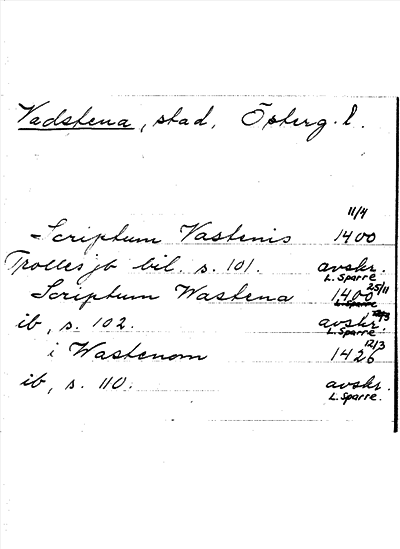 Vadstena, stad, Österg. l.
11/4
Scriptum Vastenis 1400
Trolles jb bil. s. 101. avskr.
L. Sparre
Scriptum Wastena 1400 25/11
ib, s. 102. avskr.
L. Sparre
i Wastenom 1426 12/3
ib, s. 110. avskr.
L. Sparre.